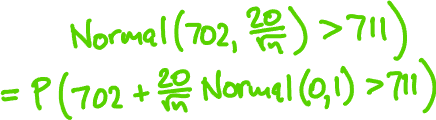 Normal(702, 20/√n) > 711)
= P(702 + 20/√n Normal(0,1) > 711)